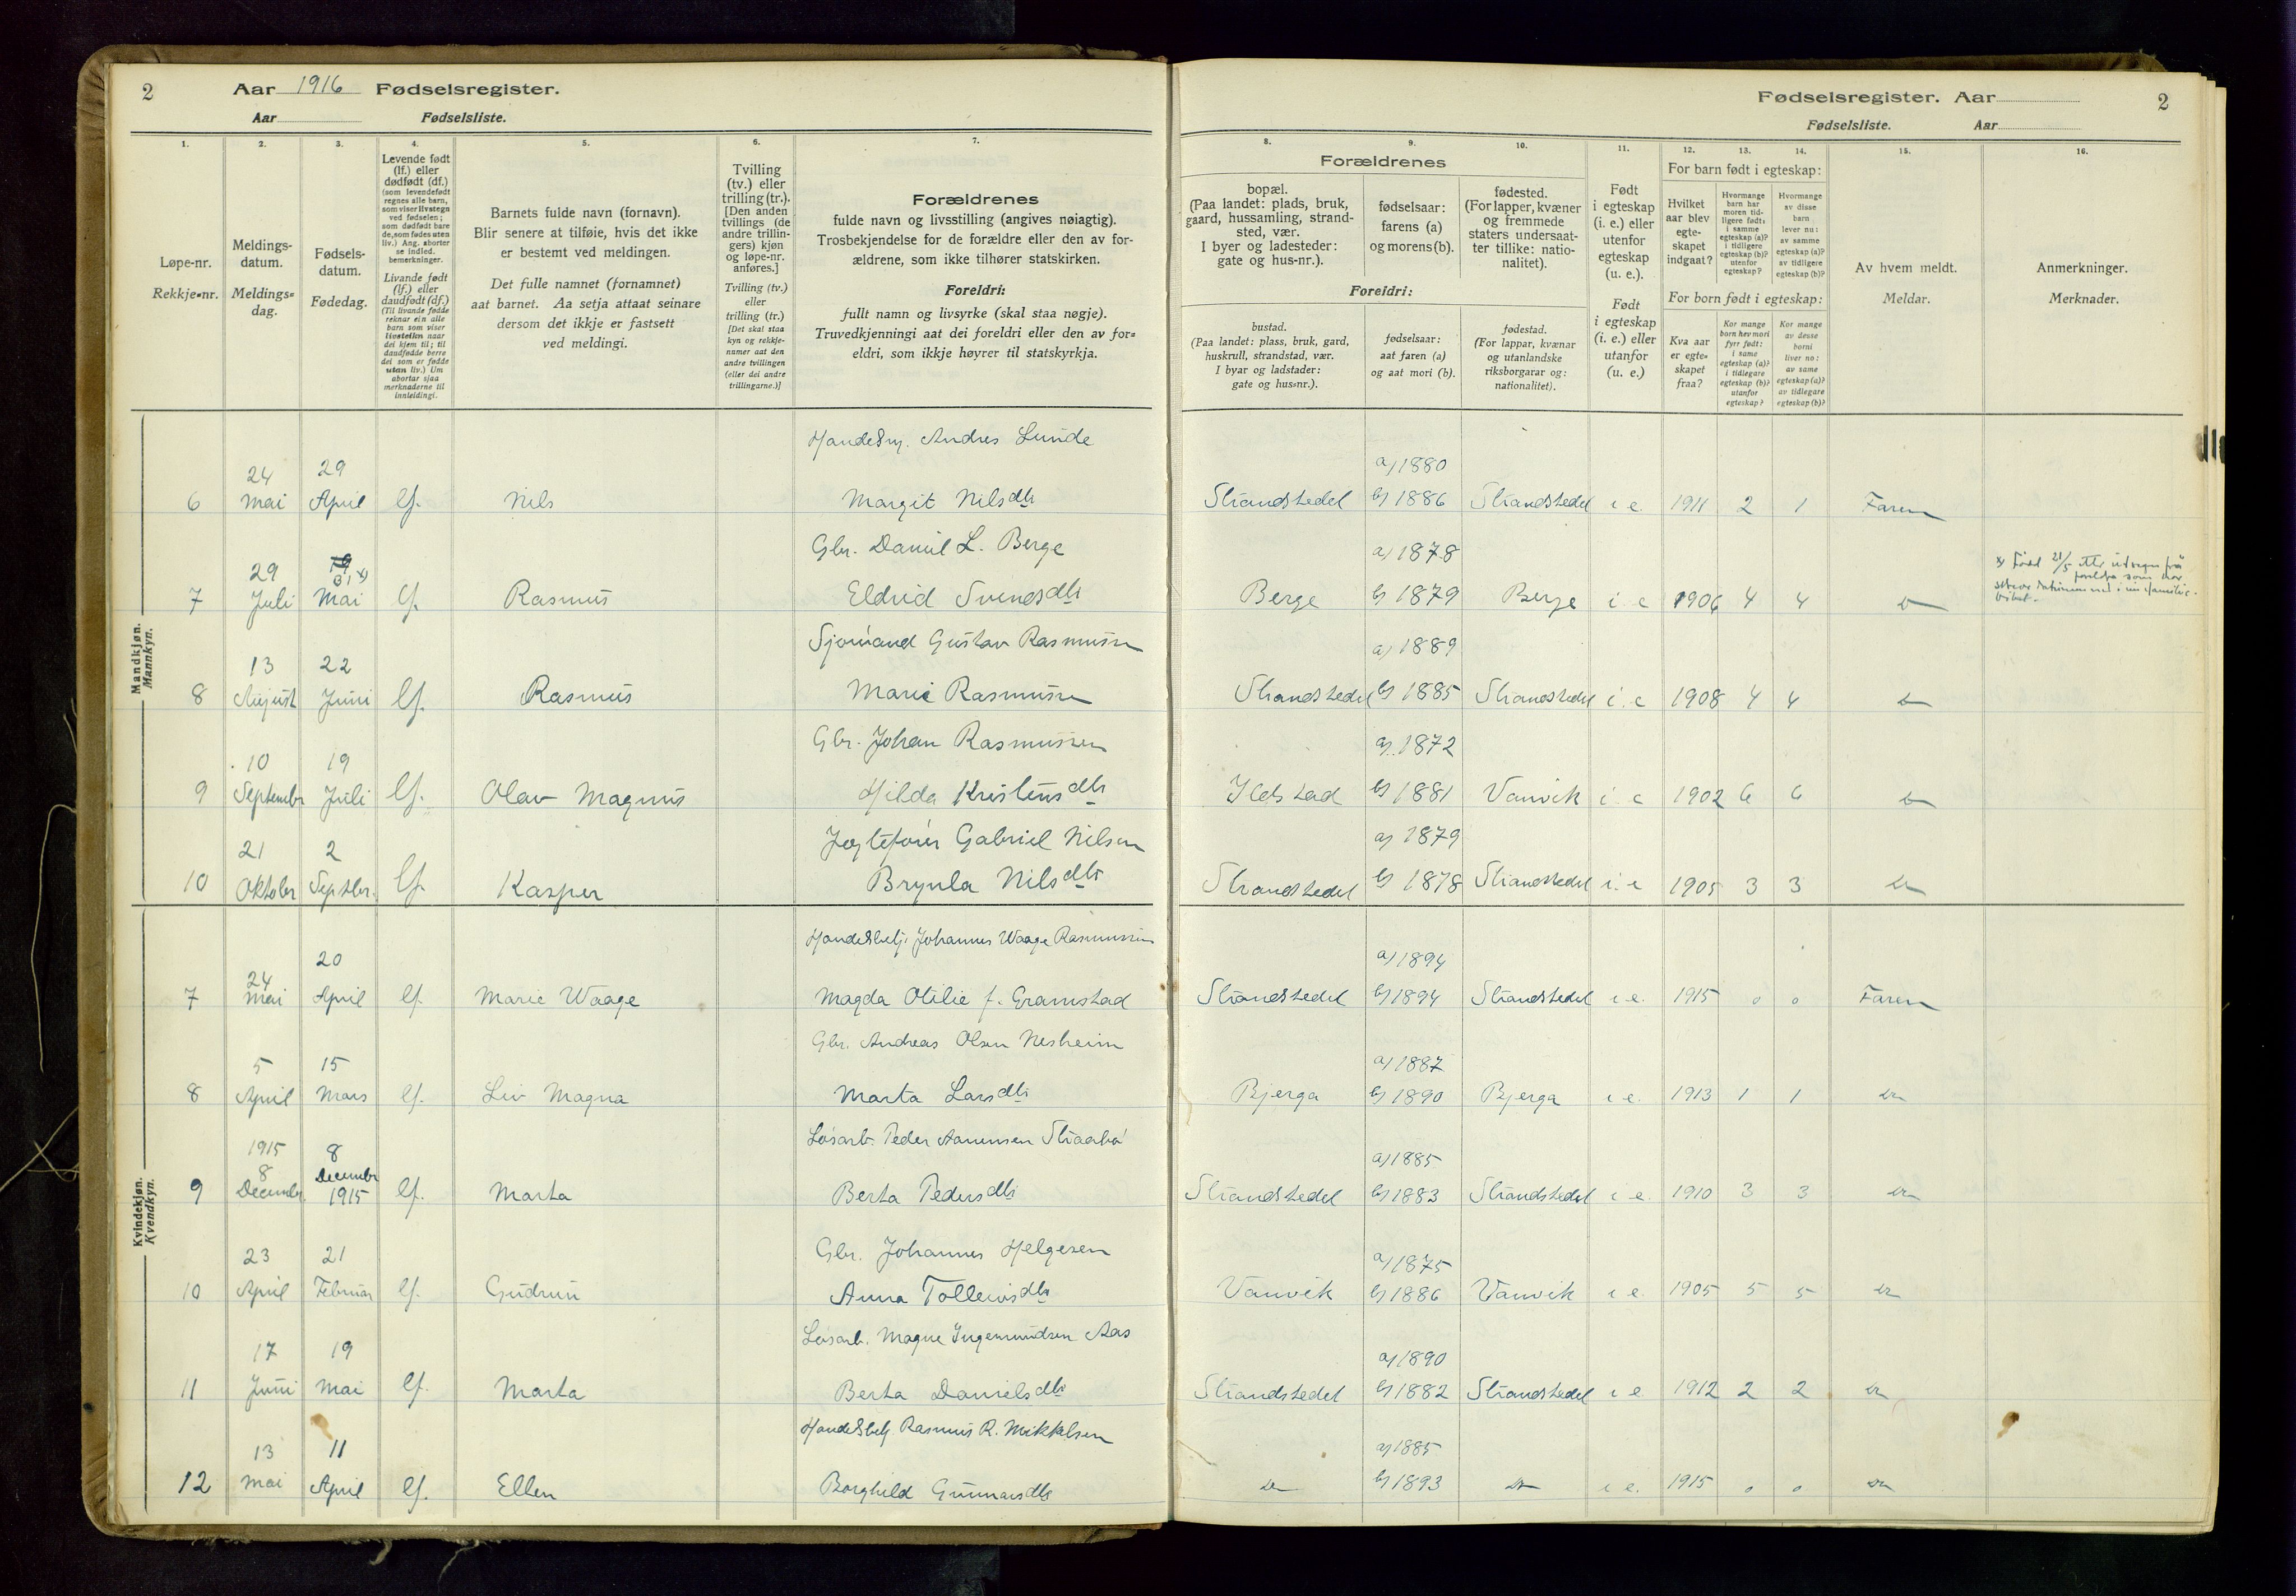 2 Aar 1916 Fødselsregister.
Aar Fødselsliste.
Fødselsregister. Aar 2
Fødselsliste. Aar
1. 2. 3. 4. 5. 6. 7. 8. 9. 10. 11. 12. 13. 14. 15. 16.
Løpe-nr.
Rekkje-nr.
Meldings-
datum.
Meldings-
dag.
Fødsels-
datum.
Fødedag.
Levende født
(lf.) eller
dødfødt (df.)
(som levendefødt
regnes alle barn,
som viser livstegn
ved fødselen;
som dødfødt bare
de, som fødes uten
liv.) Ang. aborter
se indled.
bemerkninger.
Livande født
(lf.) eller
daudfødt (df.)
(Til livande fødde
reknar ein alle
barn som viser
livsteikn naar
dei kjem til; til
daudfødde berre
dei som er fødde
utan liv.) Um
abortar sjaa
merknaderne til
innleidingi.
Barnets fulde navn (fornavn).
Blir senere at tilføie, hvis det ikke
er bestemt ved meldingen.
Det fulle namnet (fornamnet)
aat barnet. Aa setja attaat seinare
dersom det ikkje er fastsett
ved meldingi.
Tvilling
(tv.) eller
trilling (tr.).
[Den anden
tvillings (de
andre trillin-
gers) kjøn
og løpe-nr.
anføres.]
Tvilling (tv.)
eller
trilling (tr.)
[Det skal staa
kyn og rekkje-
numer aat den
andre tvillingen
(eller dei andre
trillingarne.)]
Forældrenes
fulde navn og livsstilling (angives nøiagtig).
Trosbekjendelse for de forældre eller den av for-
ældrene, som ikke tilhører statskirken.
Foreldri:
fullt namn og livsyrke (skal staa nøgje).
Truvedkjenningi aat dei foreldri eller den av for-
eldri, som ikkje høyrer til statskyrkja.
Forældrenes
bopæl.
(Paa landet: plads, bruk,
gaard, hussamling, strand-
sted, vær.
I byer og ladesteder:
gate og hus-nr.).
fødselsaar:
farens (a)
og morens (b).
fødested.
(For lapper, kvæner
og fremmede
staters undersaat-
ter tillike: natio-
nalitet).
Foreldri:
bustad.
(Paa landet: plass, bruk, gard,
huskrull, strandstad, vær.
I byar og ladstader:
gate og hus-nr.).
fødselsaar:
aat faren (a)
og aat mori (b).
fødestad.
(For lappar, kvænar
og utanlandske
riksborgarar og:
nationalitet).
Født
i egteskap
(i. e.) eller
utenfor
egteskap
(u. e.).
Født
i egteskap
(i. e.) eller
utanfor
(u. e.)
For barn født i egteskap:
Hvilket
aar blev
egte-
skapet
indgaat?
Hvormange
barn har
moren tid-
ligere født:
i samme
egteskap (a)?
i tidligere
egteskap (b)?
utenfor
egteskap?
Hvormange
av disse
barn
lever nu:
av samme
egteskap (a)?
av tidligere
egteskap (b)?
For born født i egteskap:
Kva aar
er egte-
skapet
fraa?
Kor mange
born hev mori
fyrr født:
i same
egteskap (a)?
i tidlegare
egteskap (b)?
utanfor
egteskap?
Kor mange
av desse
borni
liver no:
av same
egteskap (a)?
av tidlegare
egteskap (b)?
Av hvem meldt.
Meldar.
Anmerkninger.
Merknader.
Mandkjøn.
Mannkyn.
Andres Lunde
24 29 a) 1880
6 Mai April lf. Nils Margit Nilsdtr Strandstedet b) 1886 Strandstedet i e. 1911 2 1 Faren
Gbr. Daniel L. Berge
29 19 31 x) a) 1878
7 Juli Mai lf. Rasmus Eldrid Svendsdtr Berge b) 1879 Berge i. e 1906 4 4 Do
x) Født 21/5
Sjømand Gustav Rasmussen
13 22 a) 1889
8 August Juni lf. Rasmus Marie Rasmussen Strandstedet b) 1885 Strandstedet i. e 1908 4 4 Do
Gbr. Johan Rasmussen
10 19 a) 1872
9 September Juli lf. Olav Magnus Hilda Kristensdtr b) 1881 Vanvik i. e 1902 6 6 Do
Jægtefører Gabriel Nilsen
21 2 a) 1879
10 Oktober Septbr. lf. Kasper Brynla Nilsdtr Strandstedet b) 1878 Strandstedet i. e 1905 3 3 Do
Kvindekjøn.
Kvendkyn.
Handelsbetj. Johannes Waage Rasmussen
24 20 a) 1894
7 Mai April lf. Marie Waage Magda Otilie f. Gramstad Strandstedet b) 1894 Strandstedet i e. 1915 0 0 Faren
Gbr. Andreas Olsen Nesheim
5 15 a) 1887
8 April Mars lf. Liv Magna Marta Larsdtr Bjerga b) 1890 Bjerga i e. 1913 1 1 Do
Løsarb. Peder Aanensen Straabø
1915 8 a) 1885
8 December
9 December 1915 lf. Marta Berta Pedersdtr Strandstedet b) 1883 Strandstedet i e. 1910 3 3 Do
Gbr. Johannes Helgesen
23 21 a) 1875
10 April Februar lf. Gudrun Anna Tolleivsdtr Vanvik b) 1886 Vanvik i e. 1905 5 5 Do
Løsarb. Magne Ingemundsen Aas
17 19 a) 1890
11 Juni Mai lf. Marta Berta Danielsdtr Strandstedet b) 1882 Strandstedet i e 1912 2 2 Do
Handelsbetj. Rasmus R. Mikkelsen
13 11 a) 1885
12 Mai April lf. Ellen Borghild Gunnarsdtr Do b) 1893 Do i e. 1915 0 0 Do